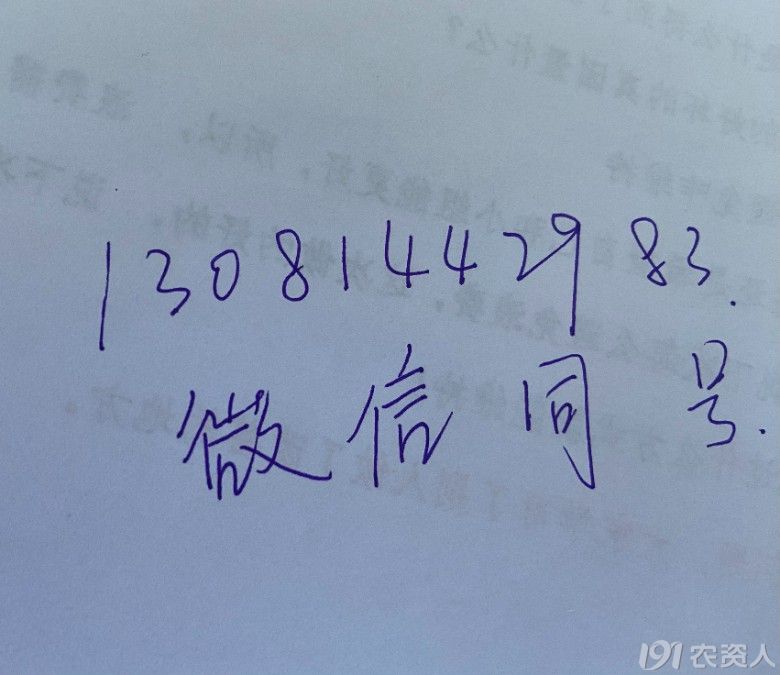 13081442983.
微信同号.
191农资人